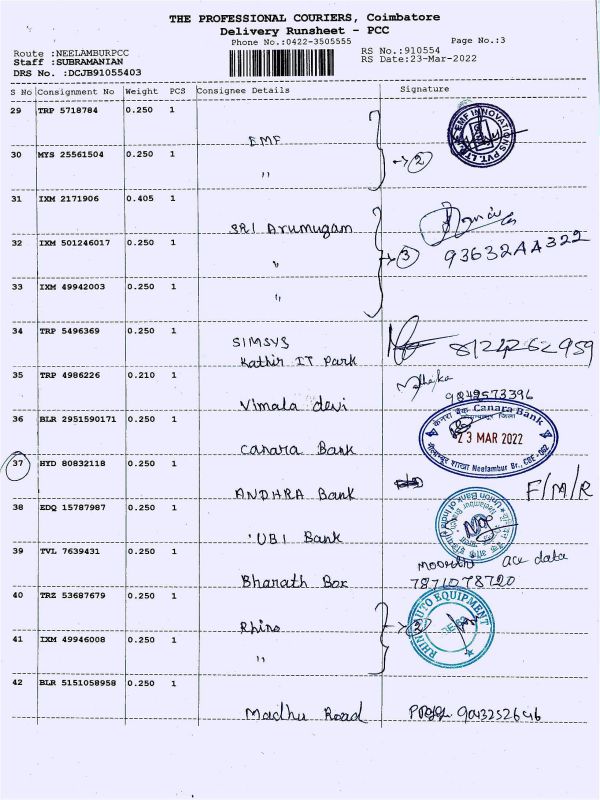 THE PROFESSIONAL COURIERS, Coimbatore
Delivery Runsheet - PCC
Phone No.:0422-3505555
Page No.:3
Route :NEELAMBURPCC
RS No.:910554
Staff :SUBRAMANIAN
RS Date:23-Mar-2022
DRS No. :DCJB91055403
S No Consignment No Weight PCS Consignee Details Signature
29 TRP 5718784 0.250 1
EMF
EMF INNOVATIONS PVT. LTD.
30 MYS 25561504 0.250 1
"
→ 2
31 IXM 2171906 0.405 1
SRI Arumugam
32 IXM 501246017 0.250 1
"
→ 3
93632AA322
33 IXM 49942003 0.250 1
"
34 TRP 5496369 0.250 1
SIMSYS
Kathir IT Park
8124262959
35 TRP 4986226 0.210 1
Vimala devi
9042573396
36 BLR 2951590171 0.250 1
Canara Bank
केनरा बैंक Canara Bank
23 MAR 2022
Neelambur Br., CBE - 062
37 HYD 80832118 0.250 1
ANDHRA Bank
F/M/R
38 EDQ 15787987 0.250 1
UBI Bank
Union Bank of India
39 TVL 7639431 0.250 1
Bharath Box
ace data
7871078720
40 TRZ 53687679 0.250 1
Rhino
→ 2
RHINO AUTO EQUIPMENT
41 IXM 49946008 0.250 1
"
42 BLR 5151058958 0.250 1
Madhu Road
9043252646